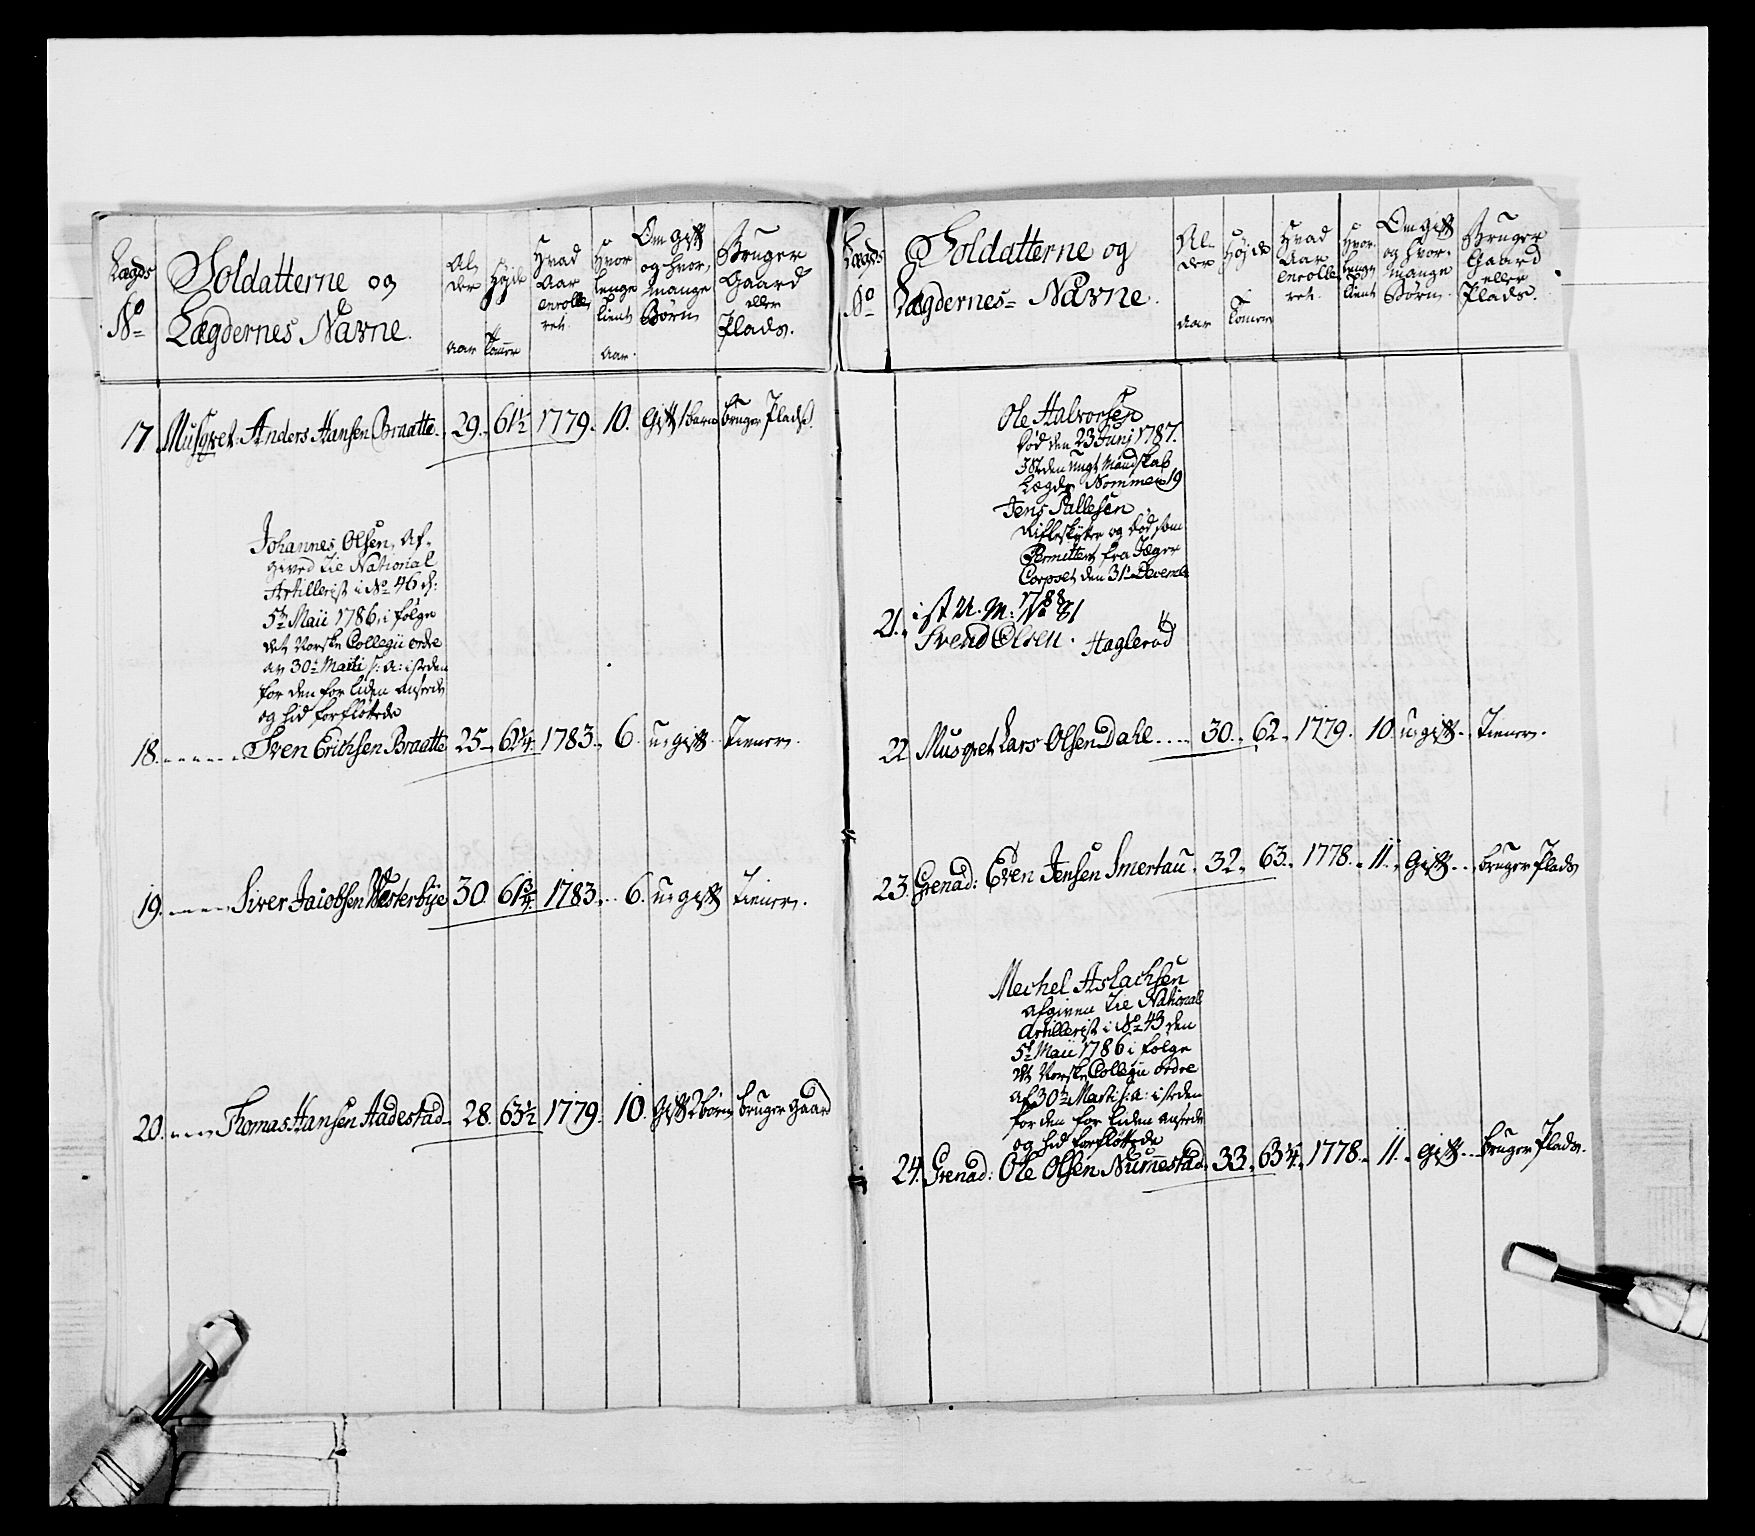 Lægds No
Soldatterne og Lægdernes Navne.
Al, der aar
Højde tommer
Hvad Aar enrolle, ret
Hvor lenge tient aar.
Om gift og hvor, mange Børn
Bruger Gaard eller Plads.
17 Musqvet: Anders Hansen Braatte. 29. 61½ 1779. 10. Gift 1 barn bruger Plads.
Johannes Olsen, af,
gived til National
Artillerist i No 46 d:
5te Maii 1786, i følge
det Norske Collegii ordre
av 30te Martii s: a: isteden
for den for liden ansede
og hid forfløttede
18. Sven Erichsen Braatte 25 61¼ 1783. 6. u, gift. Tiener.
19. Siver Jacobsen Westerbÿe 30. 61¾ 1783. 6. u, gift Tiener.
20. Thomas Hansen Aadestad. 28. 63½ 1779. 10. Gift 2 børn bruger gaard
Lægds No
Soldatterne og Lægdernes Navne.
Al, der aar
Højde Tommer
Hvad Aar enrolle, ret.
Hvor lenge tient
Om gift og hvor, mange Børn.
Bruger Gaard eller Plads.
Ole Halvorsen
død den 23 Junj 1787.
Isteden ungt Mandskab
Lægds Nommer 19
Jens Pallesen
Rifleskÿtter og død som
Permittert fra Jæger
Corpset den 31te Decemb:
1788
21. ist U. M: No 81
Svend Olsen. Haglerød
22 Musqvet Lars Olsen Dahl.... 30. 62. 1779. 10. u, gift. Tiener.
23. Grenad: Even Jensen Smertau. 32. 63. 1778. 11. Gift.. bruger Plads
Mechel Aslachsen
afgiven til National
Artillerist i No 43 den
5te Maii 1786 i følge
det Norske Collegii ordre
af 30te Martii s: a: isteden
for den for liden ansede
og hid forfløttede
24. Grenad: Ole Olsen Nummestad. 33. 63¼ 1778. 11. gift... bruger Plads.